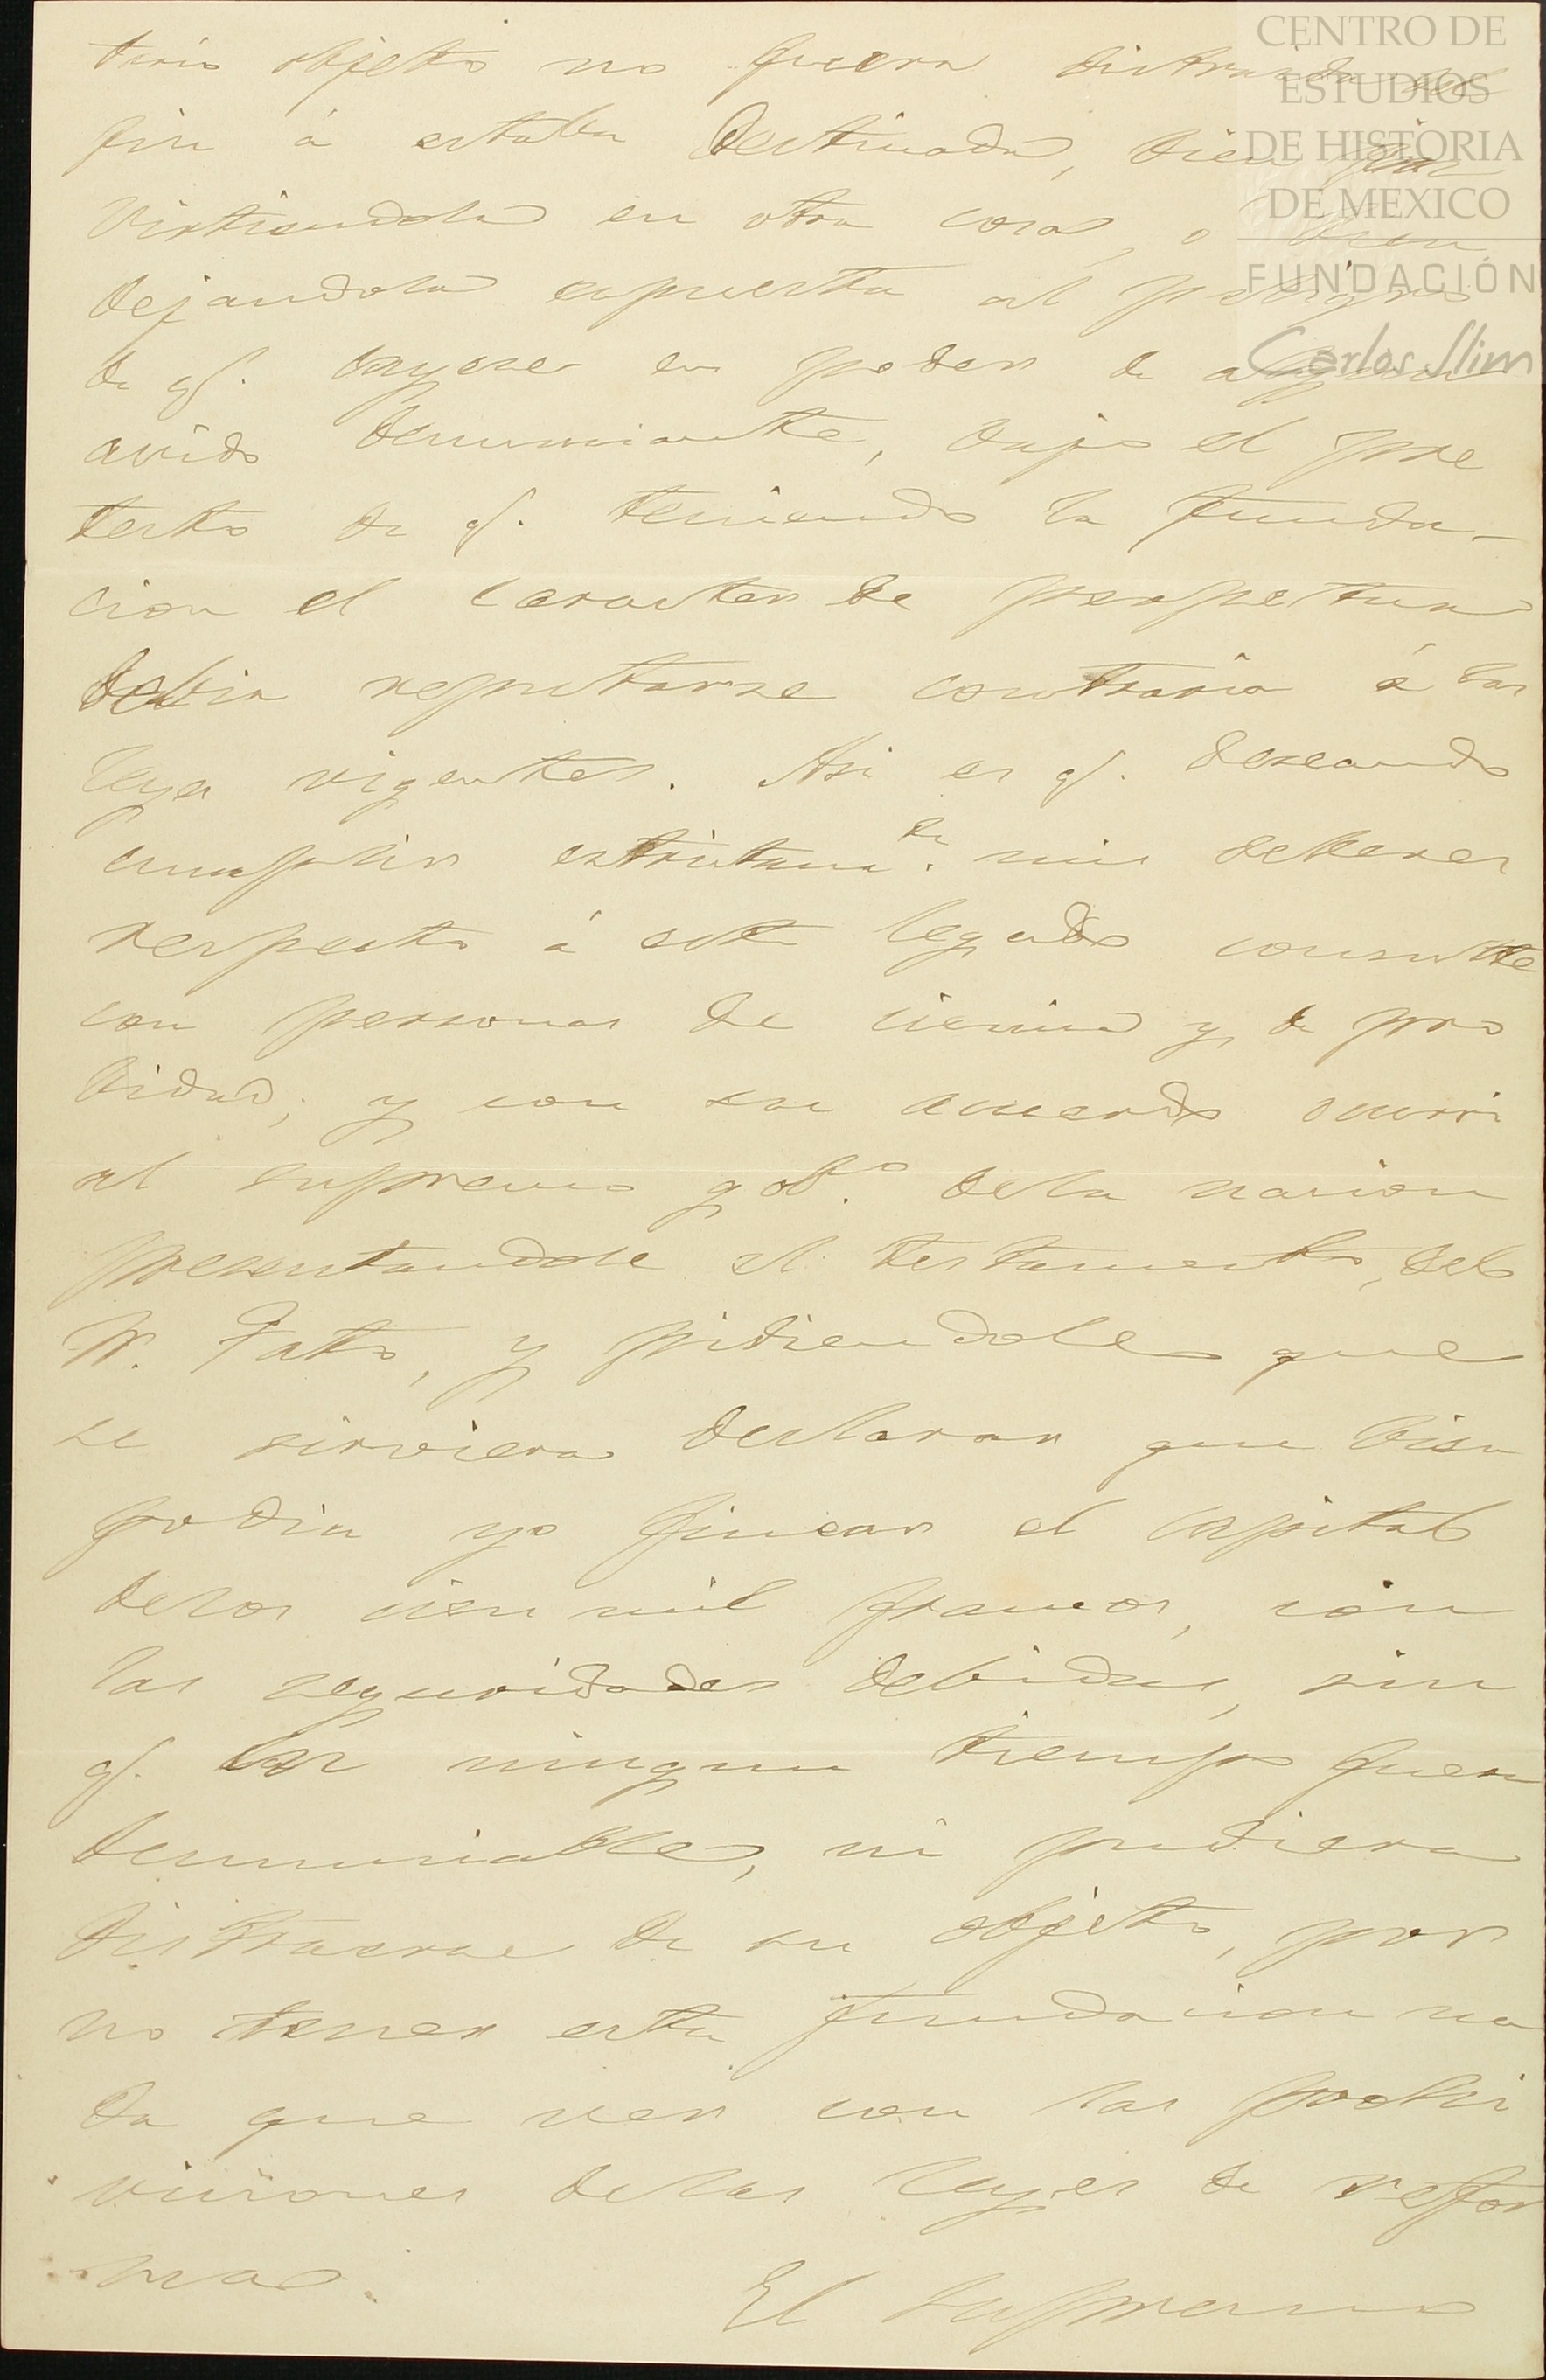 terio objeto no fuera distraida del
fin á estaba destinada, bien con
virtiendola en otra cosa, o bien
dejandola espuesta al peligro
de q. cayese en poder de algun
avido denunciante, bajo el pre
testo de q. teniendo la funda-
cion el caracter de perpetua
debia reputarse contraria á las
leyes vigentes. Asi es q. deseando
cumplir estrictamte. mis deberes
respecto á este legado consulte
con personas de ciencia y de pro
bidad; y con su acuerdo ocurri
al supremo gobo. dela nacion
presentandole el testamento, del
Sr. Fato, y pidiendole que
se sirviera declarar que bien
podia yo fincar el capital
delos cien mil francos, con
las seguridades debidas, sin
q. en ningun tiempo fuera
denunciable, ni pudiera
distraerse de su objeto, por
no tener esta fundacion na
da que ver con las prohi
viciones delas leyes de refor
mas. El supremo
CENTRO DE
ESTUDIOS
DE HISTORIA
DE MEXICO
FUNDACIÓN
Carlos Slim